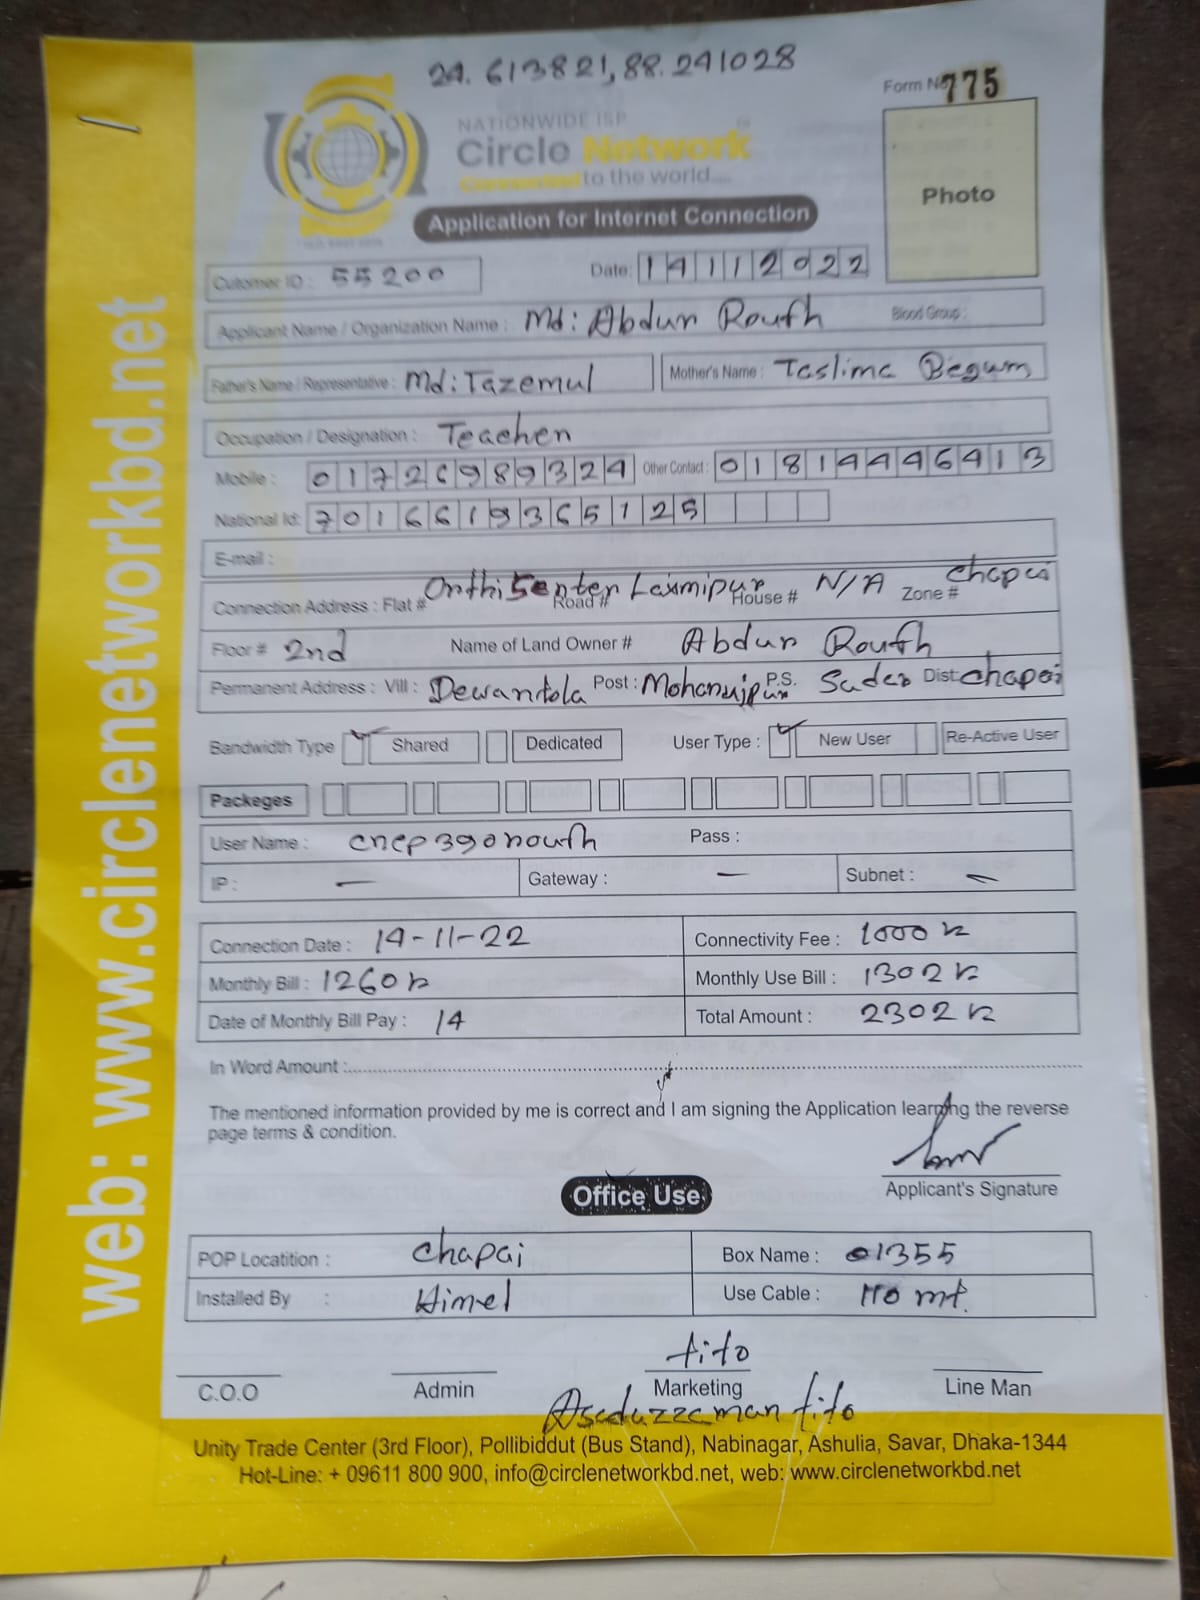 24.613821, 88.241028
Form No 775
NATIONWIDE ISP
Circle Network
Connected to the world....
Photo
Application for Internet Connection
Cutomer ID : 55200 Date: 14112022
Applicant Name / Organization Name : Md: Abdur Roufh Blood Group :
Father's Name / Representative : Md: Tazemul Mother's Name : Teslima Begum
Occupation / Designation : Teacher
Mobile : 01726989324 Other Contact : 01814446413
National Id: 7016619365125
E-mail :
Connection Address : Flat # Laxmipur Road # House # N/A Zone # Chapai
Floor # 2nd Name of Land Owner # Abdur Roufh
Permanent Address : Vill : Dewantola Post : Mohanujpur P.S. Sader Dist: Chapai
Bandwidth Type Shared Dedicated User Type : New User Re-Active User
Packeges
User Name : cncp390roufh Pass :
IP : — Gateway : — Subnet : —
Connection Date : 14-11-22 Connectivity Fee : 1000
Monthly Bill : 1260 Monthly Use Bill : 1302
Date of Monthly Bill Pay : 14 Total Amount : 2302
In Word Amount :
The mentioned information provided by me is correct and I am signing the Application learning the reverse
page terms & condition.
Applicant's Signature
Office Use
POP Locatition : Chapai Box Name : 01355
Installed By : Himel Use Cable : 110 mt.
tito
C.O.O Admin Marketing Line Man
Asaduzzaman tito
Unity Trade Center (3rd Floor), Pollibiddut (Bus Stand), Nabinagar, Ashulia, Savar, Dhaka-1344
Hot-Line: + 09611 800 900, info@circlenetworkbd.net, web: www.circlenetworkbd.net
web: www.circlenetworkbd.net